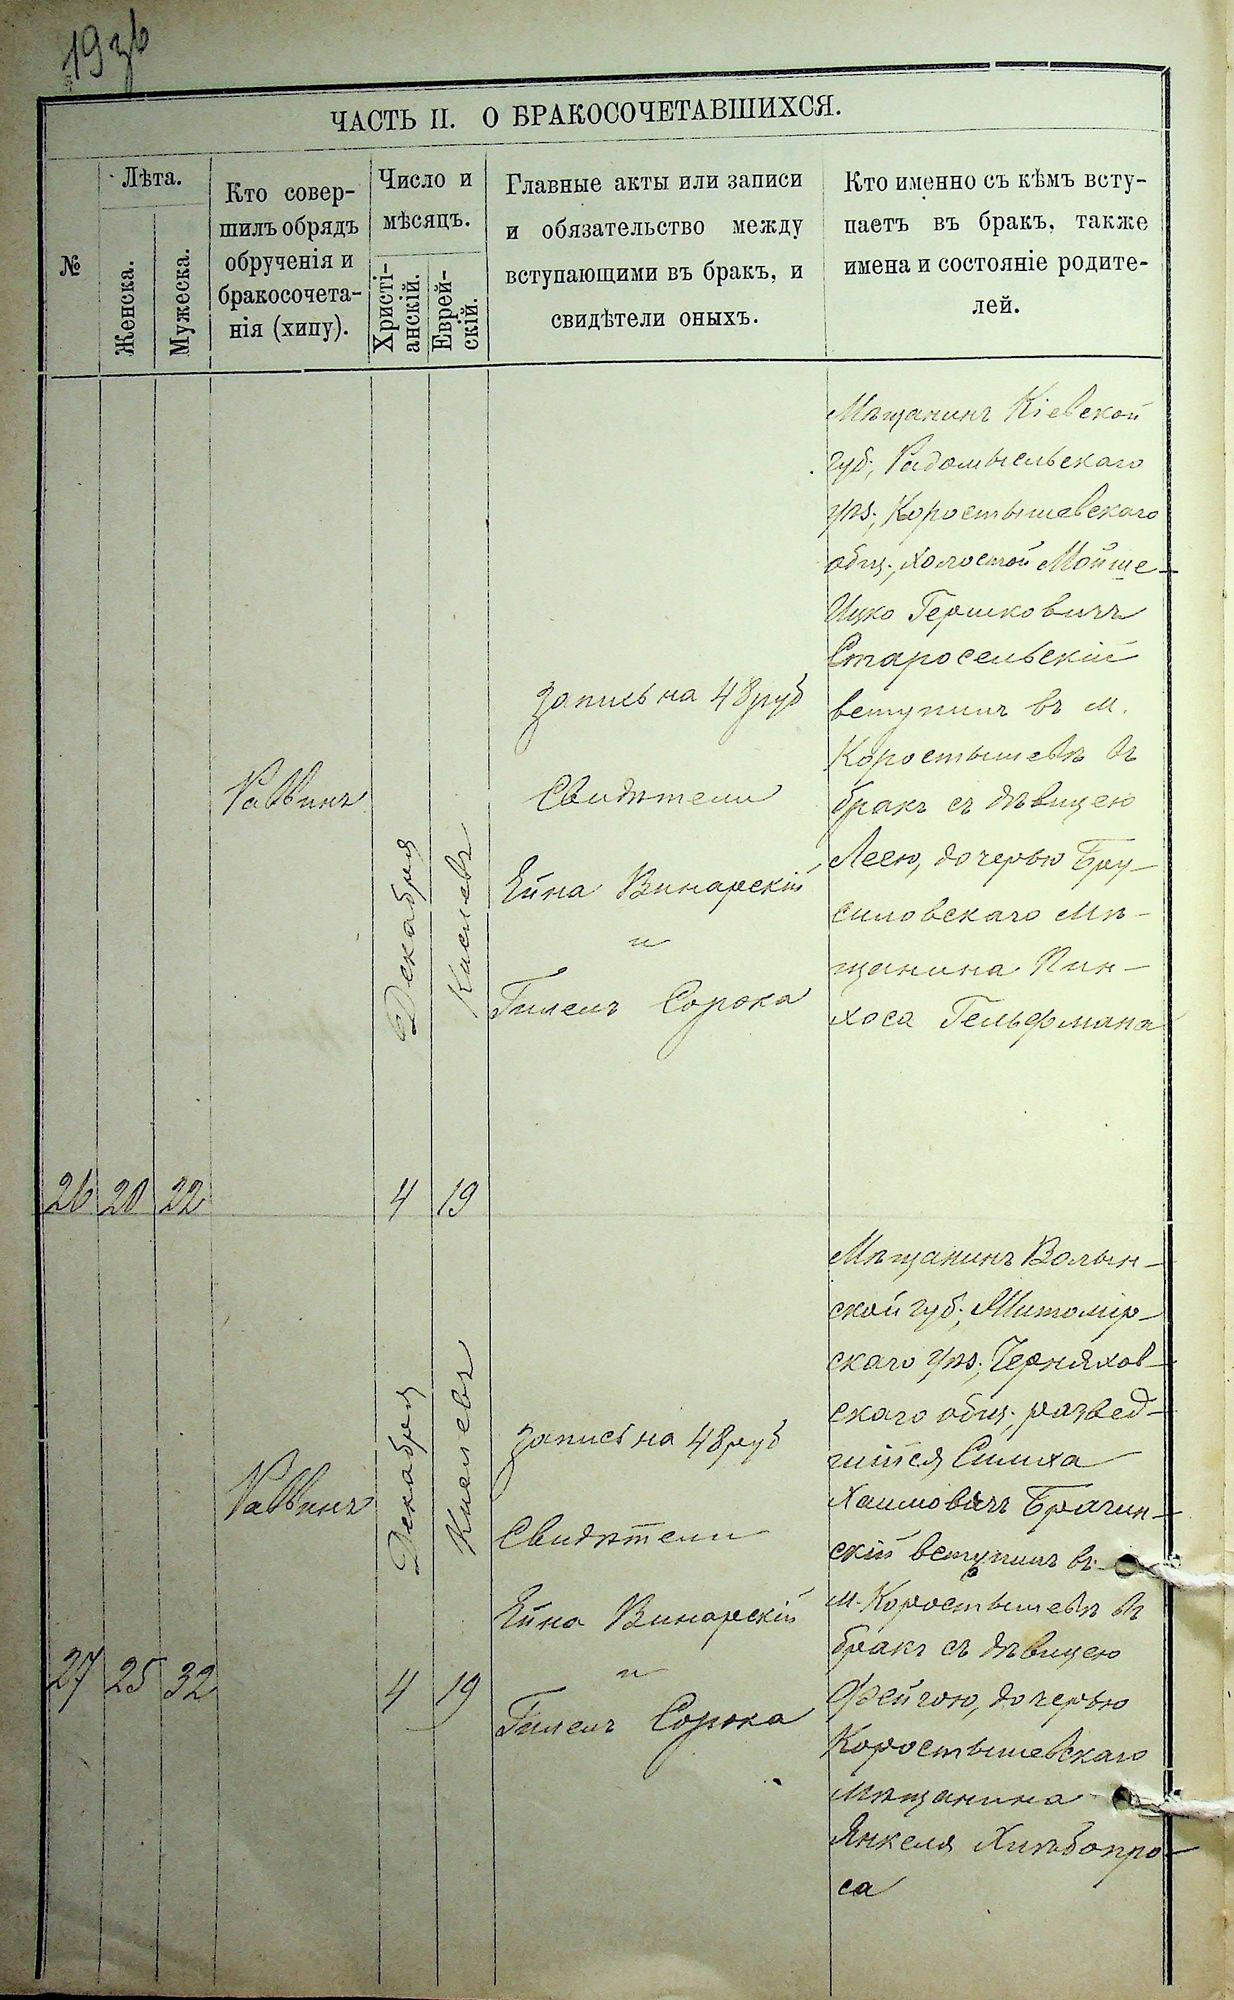 19зб
ЧАСТЬ II. О БРАКОСОЧЕТАВШИХСЯ.
№
Лѣта.
Женска.
Мужеска.
Кто совер-
шилъ обрядъ
обрученія и
бракосочета-
нія (хипу).
Число и
мѣсяцъ.
Христі-
анскій.
Еврей-
скій.
Главные акты или записи
и обязательство между
вступающими въ бракъ, и
свидѣтели оныхъ.
Кто именно съ кѣмъ всту-
паетъ въ бракъ, также
имена и состояніе родите-
лей.
26
20
22
Раввинъ
Декабря
4
Кислевъ
19
Запись на 48 руб
Свидѣтели
Ейна Винарскій
и
Гилелъ Сорока
Мѣщанинъ Кіевской
губ., Радомысльскаго
уѣз., Коростышевскаго
общ., холостой Мойше-
Ицко Гершковичъ
Старосельскій
вступилъ въ м.
Коростышевѣ въ
бракъ съ дѣвицею
Леею, дочерью Бру-
силовскаго мѣ-
щанина Пин-
хоса Гельфмана
27
25
32
Раввинъ
Декабря
4
Кислевъ
19
Запись на 48 руб
Свидѣтели
Ейна Винарскій
и
Гилелъ Сорока
Мѣщанинъ Волын-
ской губ., Житомір-
скаго уѣз., Черняхов-
скаго общ., развед-
шійся Симха
Хаимовичъ Брагин-
скій вступилъ въ
м. Коростышевѣ въ
бракъ съ дѣвицею
Фейгою, дочерью
Коростышевскаго
мѣщанина
Янкеля Хлѣбопро-
са